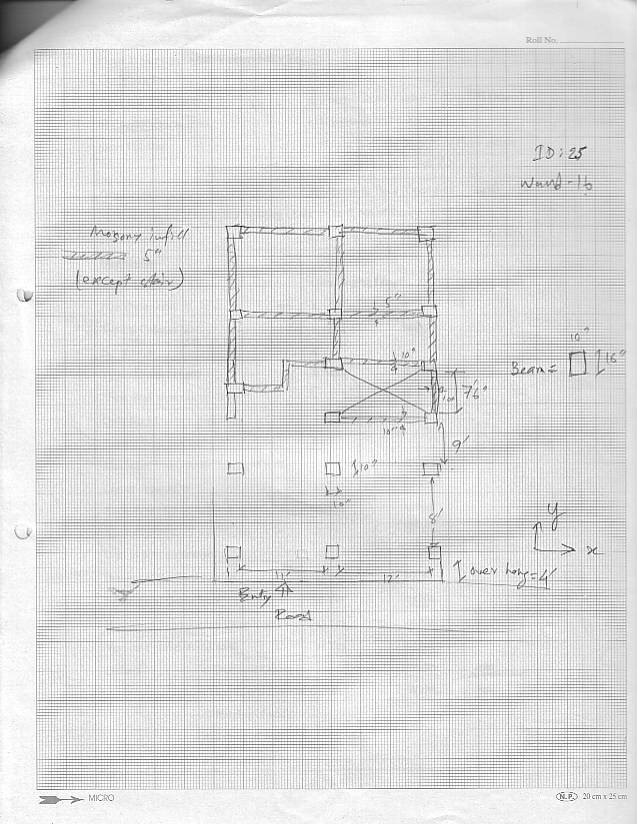 Roll No.
ID: 25
Ward-16
Masonry infill
5"
(except stair)
5"
10"
10"
Beam =
16"
10"
7'6"
10"
9'
10"
10"
8'
y
x
11'
12'
over hang = 4'
Entry
Road
MICRO
N.P. 20 cm x 25 cm